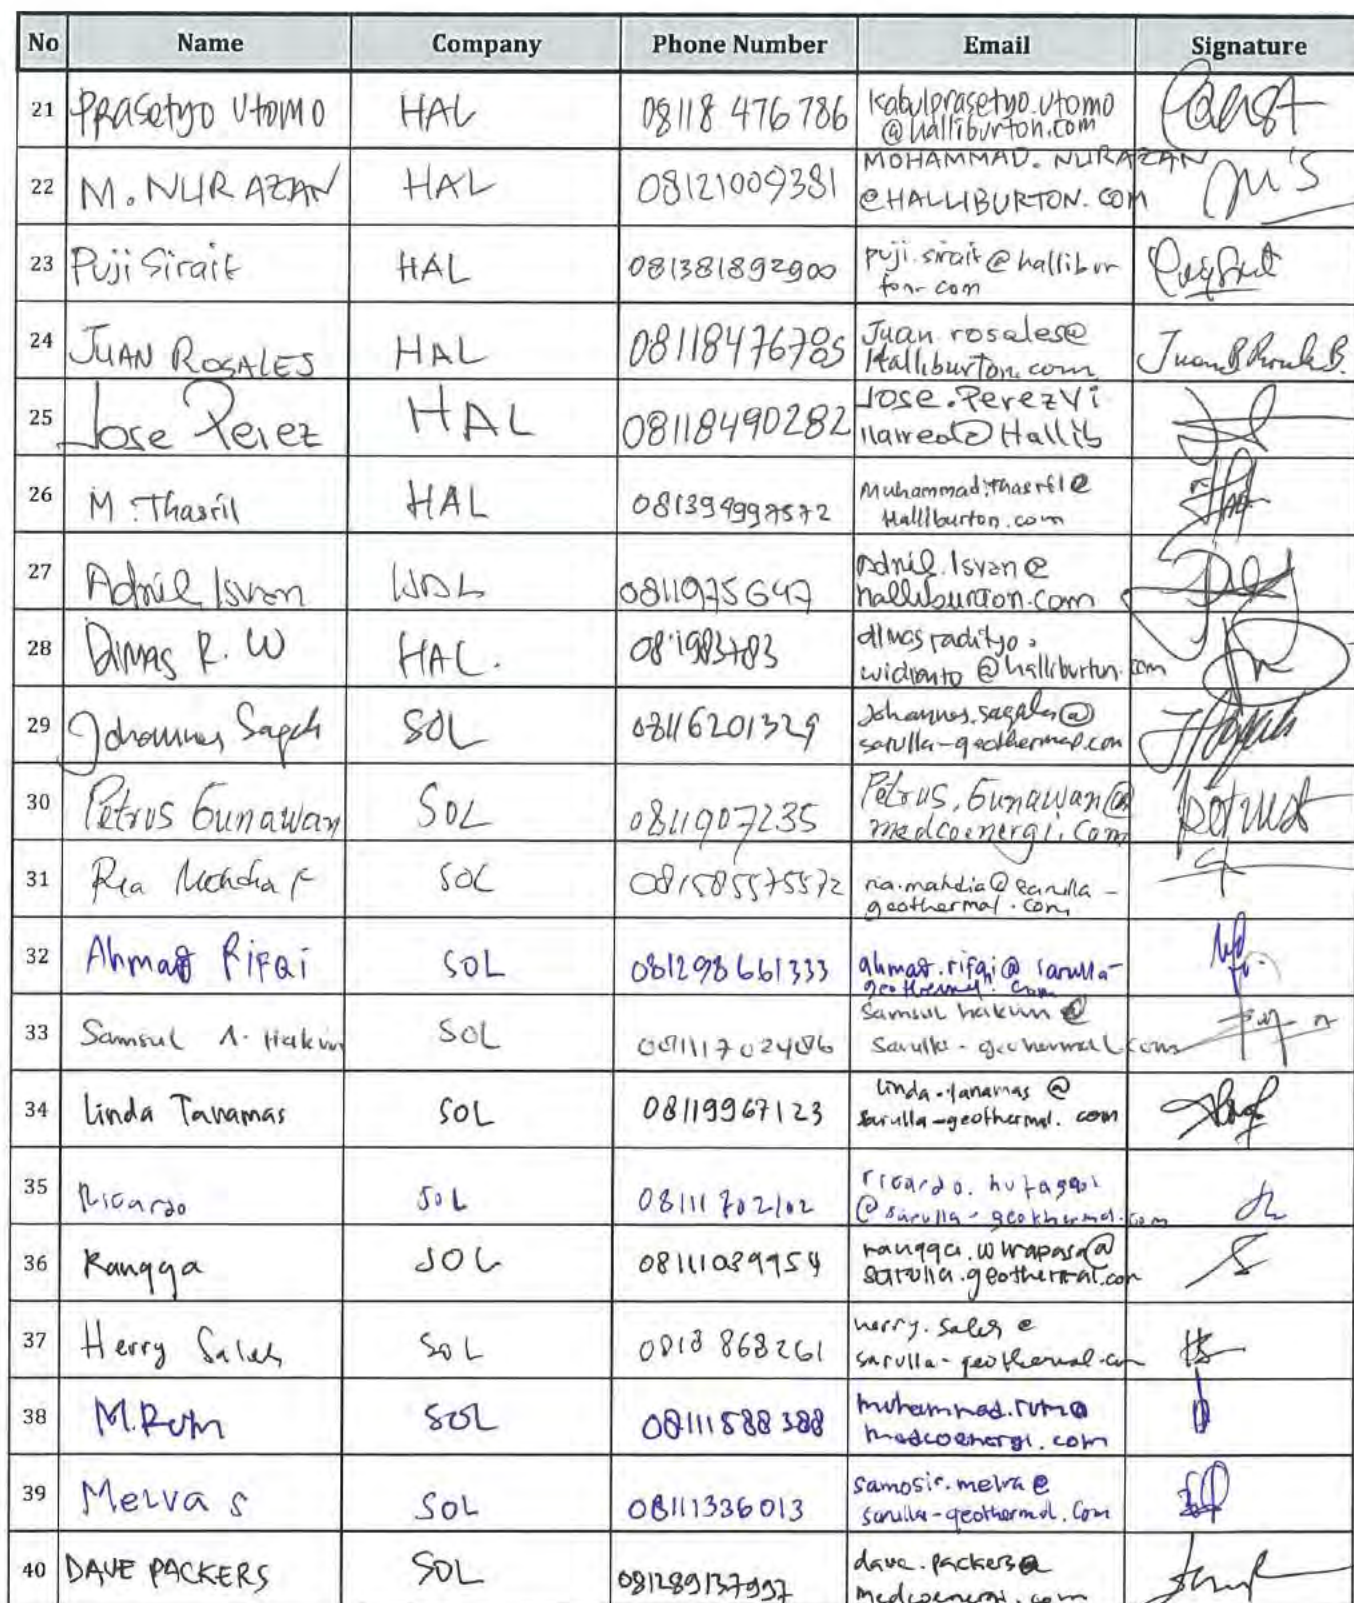 No Name Company Phone Number Email Signature
21 Prasetyo Utomo HAL 08118 476 786 kabulprasetyo.utomo
@halliburton.com
22 M. NURAZAN HAL 08121009381 MOHAMMAD. NURAZAN
@HALLIBURTON. COM
23 Puji Sirait HAL 081381892900 puji.sirait@hallibur
ton.com
24 JUAN ROSALES HAL 08118476785 Juan.rosales@
Halliburton.com
25 Jose Perez HAL 08118490282 Jose.Perezvi
llarreal@Hallib
26 M. Thasril HAL 081399997572 Muhammad.thasril@
Halliburton.com
27 Adril Isvan HAL 0811975647 Adril.Isvan@
halliburton.com
28 DIMAS R. W HAL. dimas radityo.
widianto@halliburton.com
29 SOL 08116201329
sarulla-geothermal.com
30 Petrus Gunawan SOL 0811907235 Petrus.Gunawan@
medcoenergi.com
31 Ria SOL 081585575572 ria.mahdia@sarulla-
geothermal.com
32 Ahmad Rifqi SOL 081298661333 ahmad.rifqi@sarulla-
geothermal.com
33 Samsul A. Hakim SOL samsul hakim @
sarulla-geothermal.com
34 Linda Tanamas SOL 08119967123 linda.tanamas@
sarulla-geothermal.com
35 Ricardo SOL 08111702102
@sarulla-geothermal.com
36 Rangga SOL 08111039954 rangga.wirapasa@
sarulla.geothermal.com
37 Herry Saleh SOL 0818 868261 herry.saleh@
sarulla-geothermal.com
38 M.Rum SOL 08111588388 muhammad.rum@
medcoenergi.com
39 Melva S SOL 08111336013 samosir.melva@
sarulla-geothermal.com
40 DAVE PACKERS SOL 081289137997 dave.packers@
medcoenergi.com